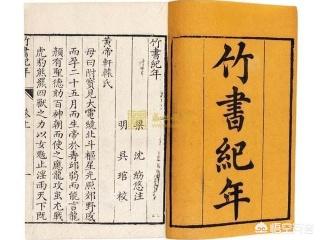 竹書紀年
竹書紀年
梁 沈約
明 吳琯校
黃帝軒轅氏
母曰附寶見大電繞北斗樞星光照郊野感
而孕二十五月而生帝於壽邱弱而能言龍
顏有聖德劾百神朝而使之應龍攻蚩尤戰
虎豹熊羆四獸之力以女魃止淫雨天下既
悟空问答